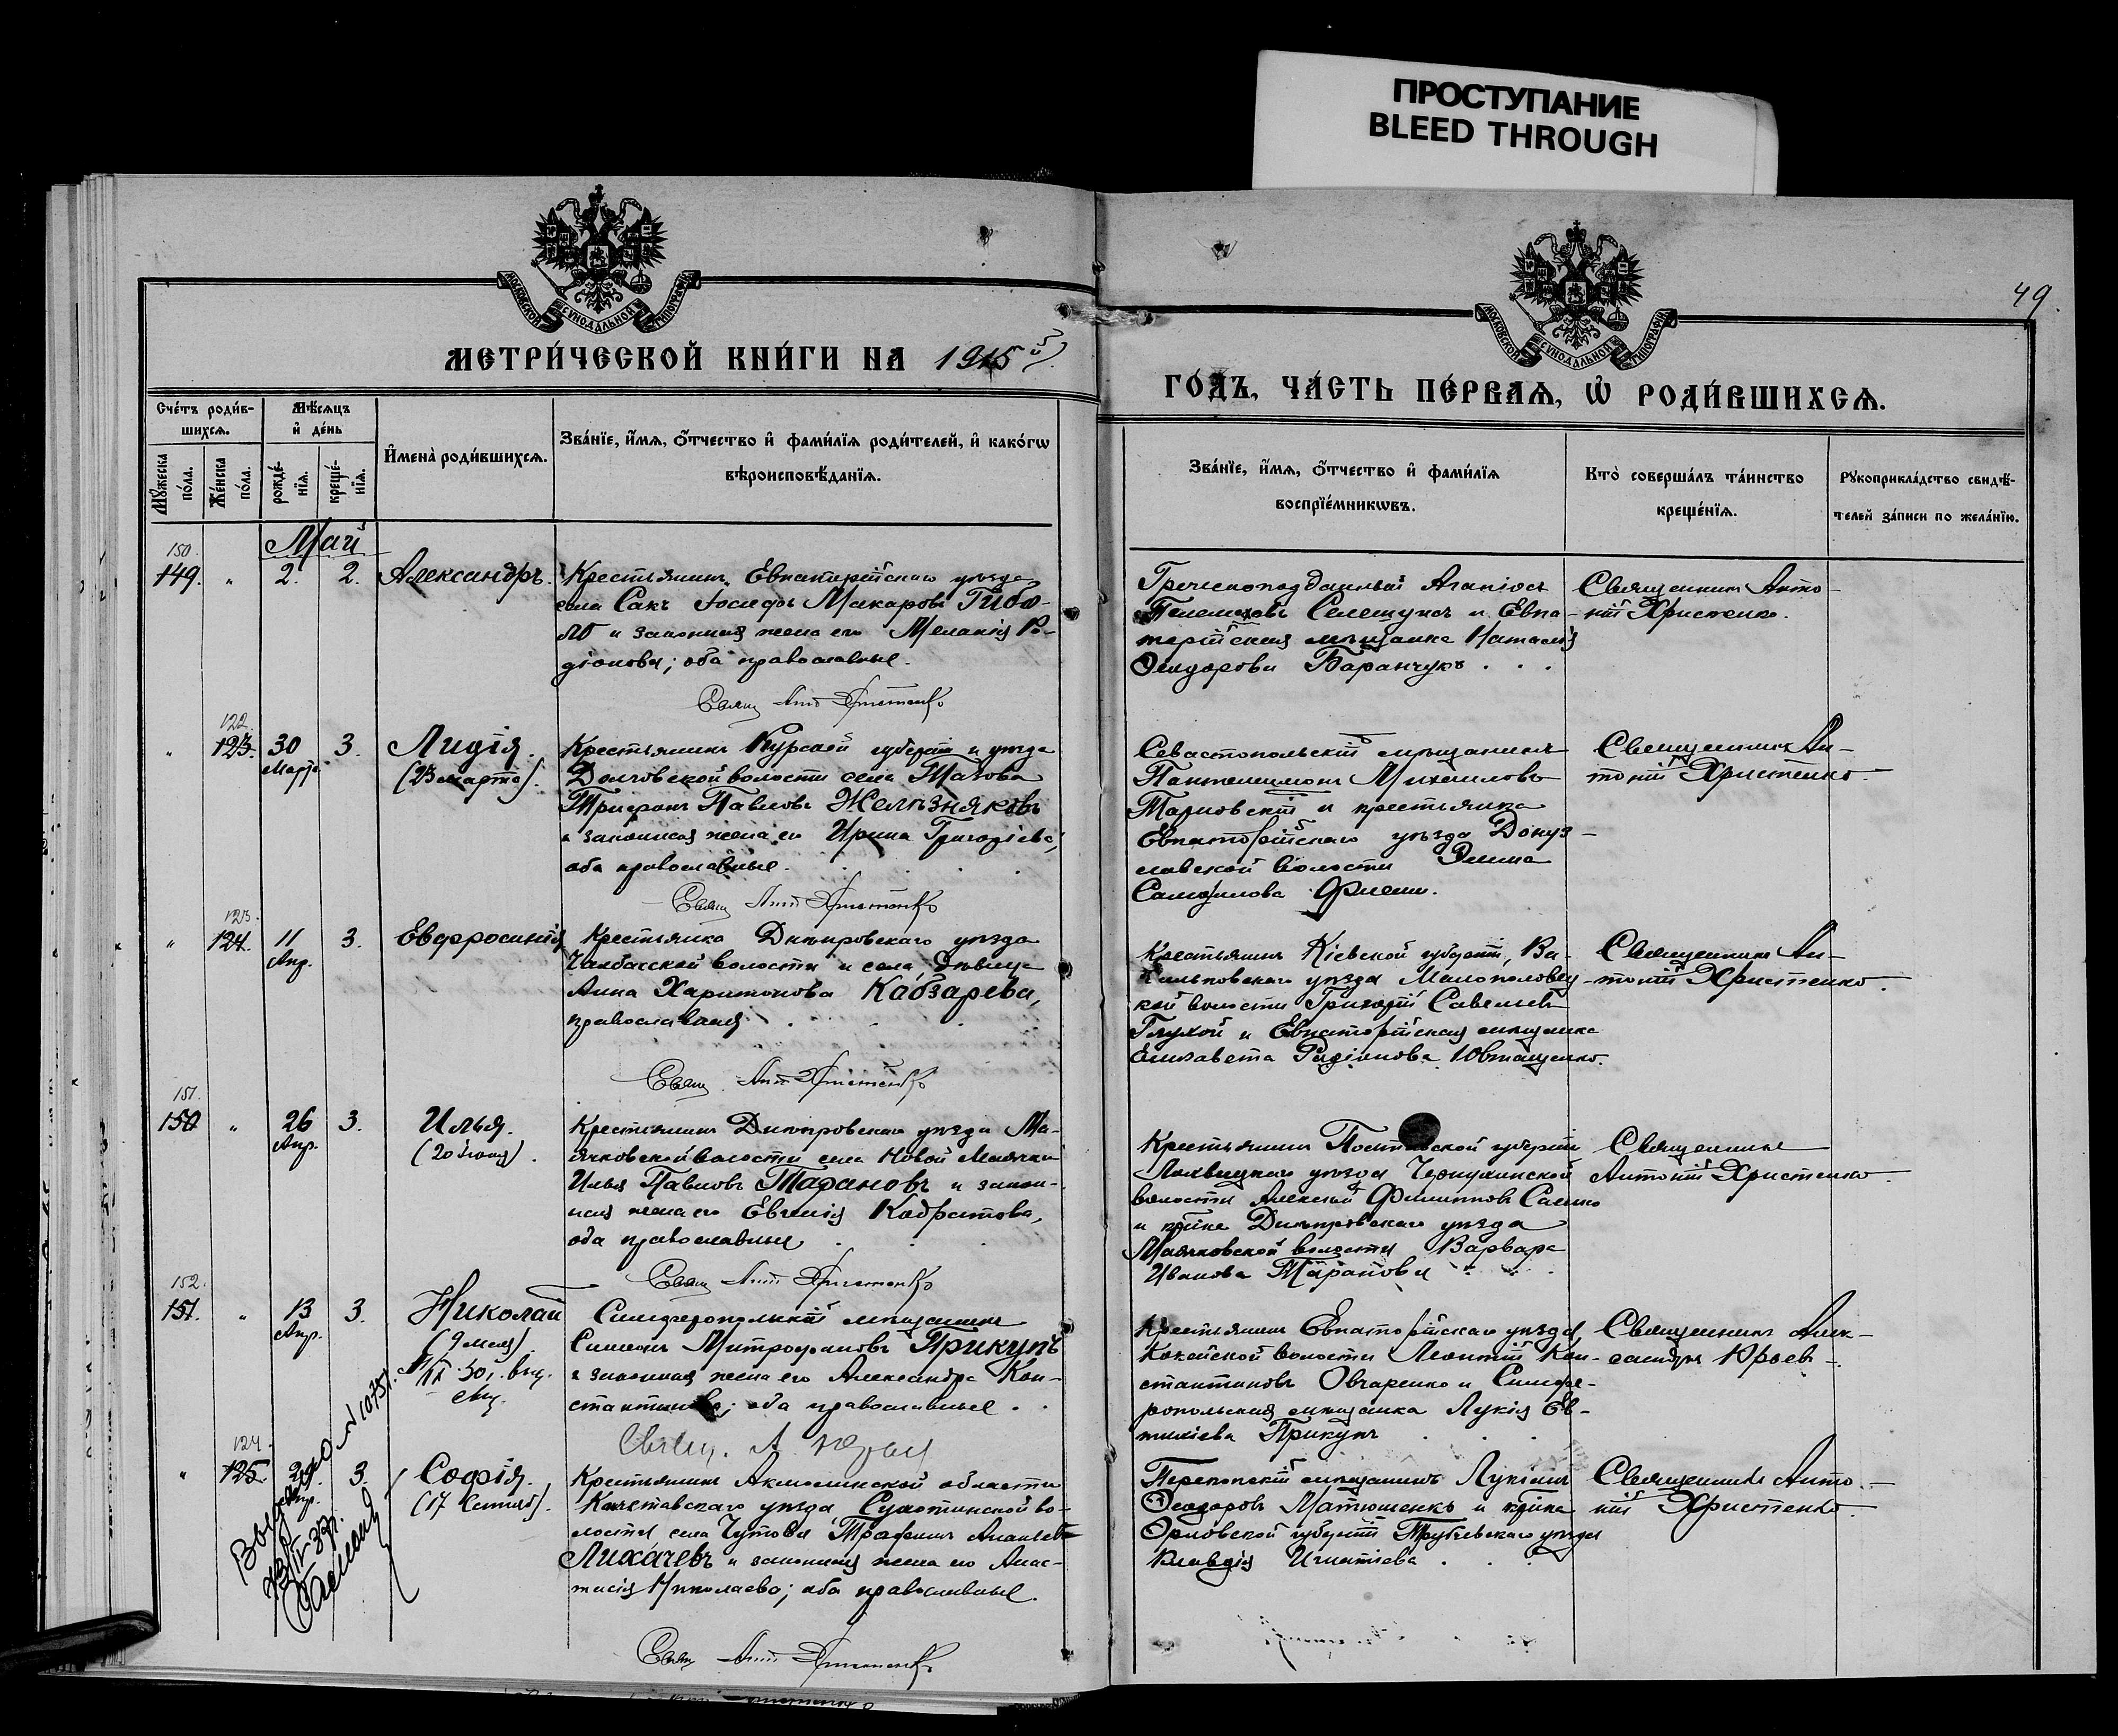 ПРОСТУПАНИЕ
BLEED THROUGH
МОСКОВСКОЙ СУНОДАЛЬНОЙ ТИПОГРАФІИ
МОСКОВСКОЙ СУНОДАЛЬНОЙ ТИПОГРАФІИ
49.
МЕТРИ́ЧЕСКОЙ КНИ́ГИ НА 1915
ГО́ДЪ, ЧА́СТЬ ПЕ́РВАѦ, Ѡ҆ РОДИ́ВШИХСѦ.
Счётъ роди́в-
шихсѧ.
Мѣ́сѧцъ
и҆ де́нь
Мꙋ́жеска
по́ла.
Же́нска
по́ла.
рожде́-
нїѧ.
креще́-
нїѧ.
И҆мена̀ роди́вшихсѧ.
Зва́нїе, и҆́мѧ, ѻ҆́тчество и҆ фами́лїѧ роди́телей, и҆ како́гѡ
вѣроисповѣ́данїѧ.
Зва́нїе, и҆́мѧ, ѻ҆́тчество и҆ фами́лїѧ
воспрїе́мникѡвъ.
Кто̀ соверша́лъ та́инство
креще́нїѧ.
Рꙋкоприкла́дство свидѣ́-
телей за́писи по жела́нїю.
Май
150.
149. " 2. 2. Александръ.
Крестьянинъ Евпаторійскаго уѣзда
села Сакъ Іосифъ Макаровъ
и законная жена его Меланія Ро-
діонова; оба православные.
Свящ. Ант. Христенко
Греческоподданный Агапіосъ
и Евпа-
торійская мѣщанка Наталія
Ѳеодорова Баранчукъ . . .
Священникъ Анто-
ній Христенко.
122.
" 123. 30 3. Лидія.
Марта (23 марта).
Крестьянинъ Курской губерніи и уѣзда
Долговской волости села
Трифонъ Павловъ Желѣзняковъ
и законная жена его Ирина Григорьева,
оба православные.
Свящ. Ант. Христенко
Севастопольскій мѣщанинъ
Пантелеимонъ Михаиловъ
Тарновскій и крестьянка
Евпаторійскаго уѣзда Донуз-
лавской волости
Самуилова
Священникъ Ан-
тоній Христенко.
123.
" 124. 11 3. Евфросинія
Апр.
Крестьянка Днѣпровскаго уѣзда
Чалбасской волости и села, дѣвица
Анна Харитонова Кобзарева,
православная.
Свящ. Ант. Христенко
Крестьянинъ Кіевской губерніи, Ва-
сильковскаго уѣзда Малополовец-
кой волости Григорій Савельевъ
Глухой и Евпаторійская мѣщанка
Елизавета Родіонова Ювтащенко.
Священникъ Ан-
тоній Христенко.
151.
150 " 26 3. Илья.
Апр. (20 іюля).
Крестьянинъ Днѣпровскаго уѣзда Ма-
ячковской волости села Новой Маячки
Илья Павловъ Тарановъ и закон-
ная жена его Евгенія Кодратова,
оба православные
Свящ. Ант. Христенко
Крестьянинъ Полтавской губерніи
Лохвицкаго уѣзда Чернухинской
волости Алексѣй Филипповъ
и кр-нка Днѣпровскаго уѣзда
Маячковской волости Варвара
Иванова Таранова
Священникъ
Антоній Христенко.
152.
151. " 13 3. Николай
Апр. (9 мая).
Симферопольскій мѣщанинъ
Симеонъ Митрофановъ Прикупъ
и законная жена его Александра Кон-
стантинова; оба православные . .
Свящ. А.
Крестьянинъ Евпаторійскаго уѣзда,
волости Леонтій Кон-
стантиновъ Овчаренко и Симфе-
ропольская мѣщанка Лукія Ев-
тихіева Прикупъ
Священникъ Алек-
сандръ Юрьев.
124.
" 125. 3. Софія.
Апр. (17 Сентяб).
Крестьянинъ Акмолинской области
Кокчетавскаго уѣзда, Сухотинской во-
лости села Чутова Трофимъ Ананьевъ
Лихачевъ и законная жена его Анас-
тасія Николаева; оба православные.
Свящ. Ант. Христенко
Перекопскій мѣщанинъ Лукіанъ
Ѳеодоровъ Матюшенко и кр-нка
Орловской губерніи Трубчевскаго уѣзда
Клавдія Игнатіева . . .
Священникъ Анто-
ній Христенко.